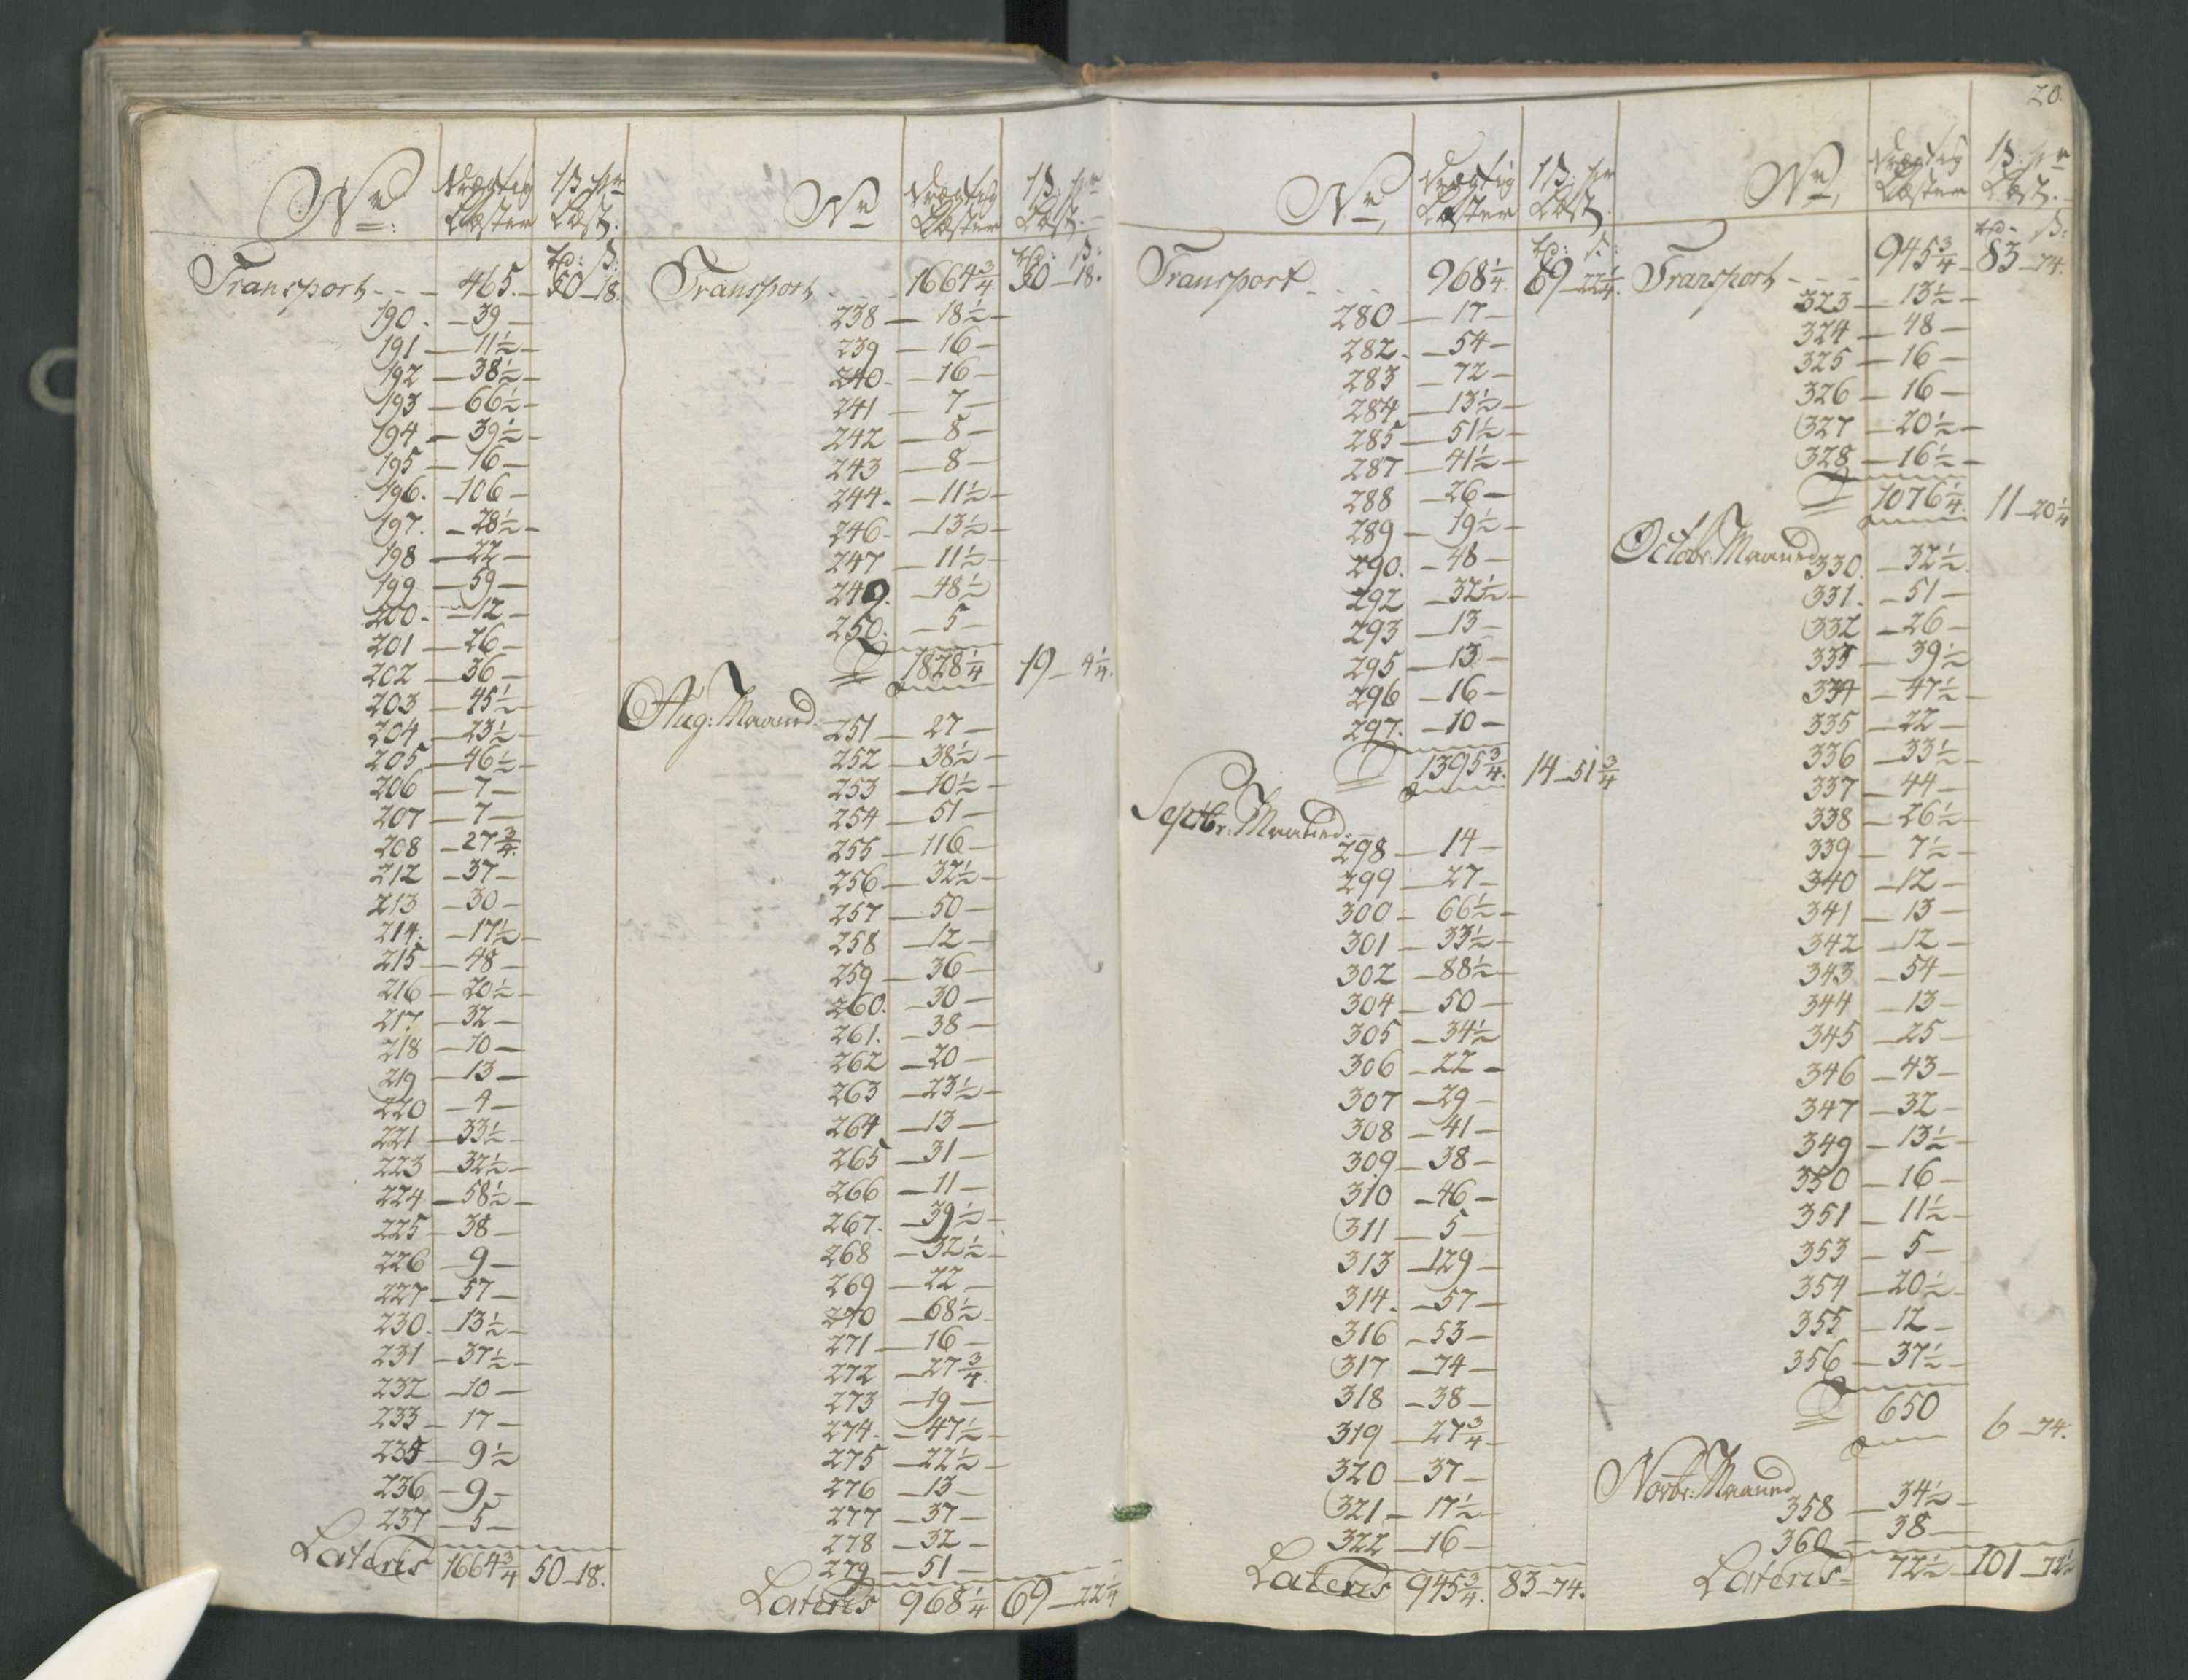 20.
Nr: Drægtig Læster 1 ß: pr Læst.
rd: ß:
Transport - - - 465. 50 - 18.
190. - 39 -
191 - 11½ -
192 - 38½ -
193 - 66½ -
194 - 39½ -
195 - 16 -
196. - 106 -
197. - 28½ -
198 - 22 -
199 - 59 -
200. - 12 -
201 - 26 -
202 - 36 -
203 - 45½ -
204 - 23½ -
205 - 46½ -
206 - 7 -
207 - 7 -
208 - 27¾
212 - 37 -
213 - 30 -
214. - 17½ -
215 - 48 -
216 - 20½ -
217 - 32 -
218 - 10 -
219 - 13 -
220 - 4 -
221 - 33½ -
223 - 32½ -
224 - 58½ -
225 - 38 -
226 - 9 -
227 - 57 -
230. - 13½ -
231 - 37½ -
232 - 10 -
233 - 17 -
235 - 9½
236 - 9 -
237 - 5 -
Lateris 1664¾ 50 - 18.
Nr Drægtig Læster 1 ß: pr Læst.
rd: ß:
Transport - - - 1664¾ 50 - 18.
238 - 18½ -
239 - 16 -
240. - 16 -
241 - 7 -
242 - 8 -
243 - 8 -
244. - 11½ -
246. - 13½ -
247 - 11½ -
249. - 48½
250. - 5 -
1828¼ 19 - 4¼.
Aug: Maaned
251 - 27 -
252 - 38½ -
253 - 10½ -
254 - 51 -
255 - 116 -
256 - 32½ -
257 - 50 -
258 - 12 -
259 - 36 -
260. - 30 -
261. - 38 -
262 - 20 -
263 - 23½ -
264 - 13 -
265 - 31 -
266 - 11 -
267. - 39½ -
268 - 32½ -
269 - 22 -
270 - 68½
271 - 16 -
272 - 27¾.
273 - 19 -
274. - 47½ -
275 - 22½ -
276 - 13 -
277 - 37 -
278 - 32 -
279 - 51 -
Lateris 968¼ 69 - 22¼
Nr, Drægtig Læster 1 ß: pr Læst.
rd: ß:
Transport - - - 968¼ 69 - 22¼.
280 - 17 -
282. - 54 -
283 - 72 -
284 - 13½ -
285 - 51½ -
287 - 41½ -
288 - 26 -
289 - 19½ -
290. - 48 -
292 - 32½ -
293 - 13 -
295 - 13 -
296 - 16 -
297. - 10 -
1395¾. 14 - 51¾
Septbr: Maaned.
298 - 14 -
299 - 27 -
300 - 66½ -
301 - 33½ -
302 - 88½ -
304 - 50 -
305 - 34½
306 - 22 -
307 - 29 -
308 - 41 -
309 - 38 -
310 - 46 -
311 - 5 -
313 - 129 -
314. - 57 -
316 - 53 -
317 - 74 -
318 - 38 -
319 - 27¾ -
320 - 37 -
321 - 17½ -
322 - 16 -
Lateris 945¾. 83 - 74.
Nr, Drægtig Læster 1 ß: pr Læst.
rd. ß:
Transport - - - 945¾ - 83 - 74.
323 - 13½ -
324 - 48 -
325 - 16 -
326 - 16 -
327 - 20½ -
328 - 16½ -
1076¼. 11 - 20¼
Octobr: Maaned
330. - 32½.
331. - 51 -
332 - 26 -
333 - 39½
334 - 47½ -
335 - 22 -
336 - 33½ -
337 - 44 -
338 - 26½ -
339 - 7½ -
340 - 12 -
341 - 13 -
342 - 12 -
343 - 54 -
344 - 13 -
345 - 25 -
346 - 43 -
347 - 32 -
349 - 13½ -
350 - 16 -
351 - 11½ -
353 - 5 -
354 - 20½ -
355 - 12 -
356 - 37½ -
650 6 - 74.
Novbr: Maaned
358 - 34½ -
360 - 38 -
Lateris - 72½ - 101 - 72½